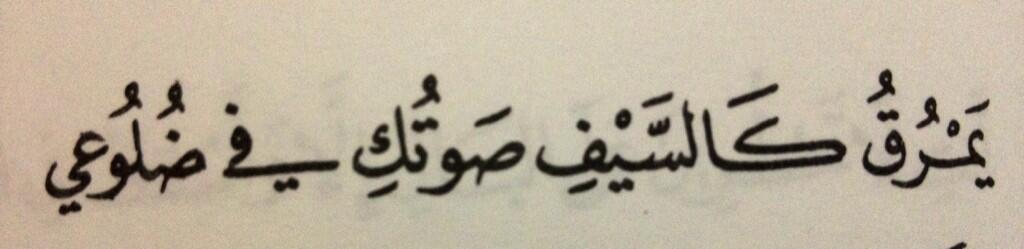 يَمْرُقُ كَالسَّيْفِ صَوتُكِ في ضُلُوعي